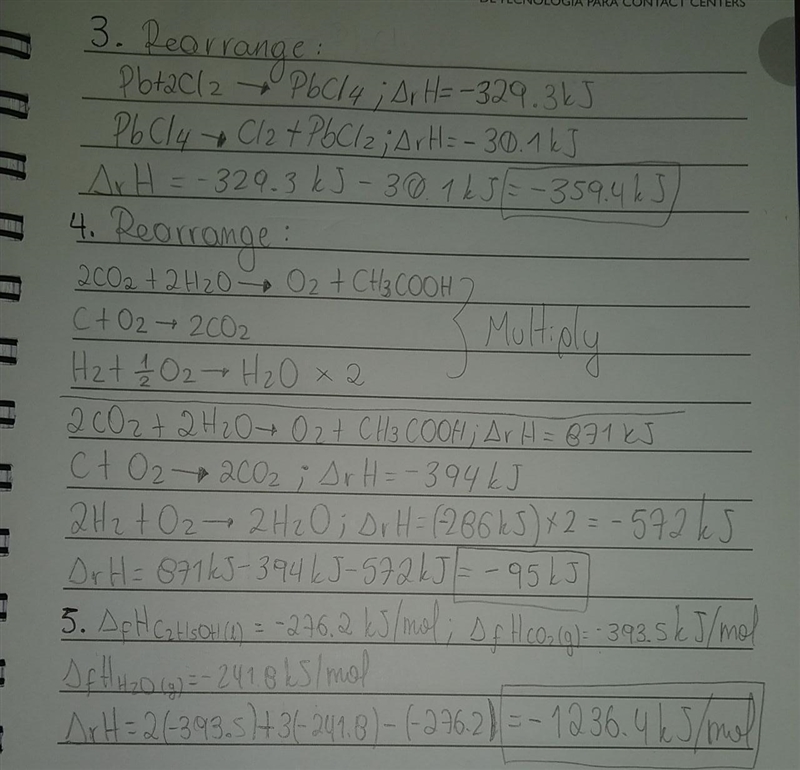 DE TECNOLOGÍA PARA CONTACT CENTERS
3. Rearrange:
Pb+2Cl2 → PbCl4; ΔrH=-329.3kJ
PbCl4 → Cl2+PbCl2; ΔrH=-30.1kJ
ΔrH = -329.3 kJ - 30.1kJ = -359.4kJ
4. Rearrange:
2CO2+2H2O → O2+CH3COOH
C+O2→2CO2 } Multiply
H2+½O2→H2O × 2
2CO2+2H2O→O2+CH3COOH; ΔrH=871kJ
C+O2→2CO2; ΔrH=-394kJ
2H2+O2→2H2O; ΔrH=(-286kJ)×2=-572kJ
ΔrH=871kJ-394kJ-572kJ=-95kJ
5. ΔfHC2H5OH(l)=-276.2 kJ/mol; ΔfHCO2(g)=-393.5kJ/mol
ΔfHH2O(g)=-241.8kJ/mol
ΔrH=2(-393.5)+3(-241.8)-(-276.2)=-1236.4kJ/mol